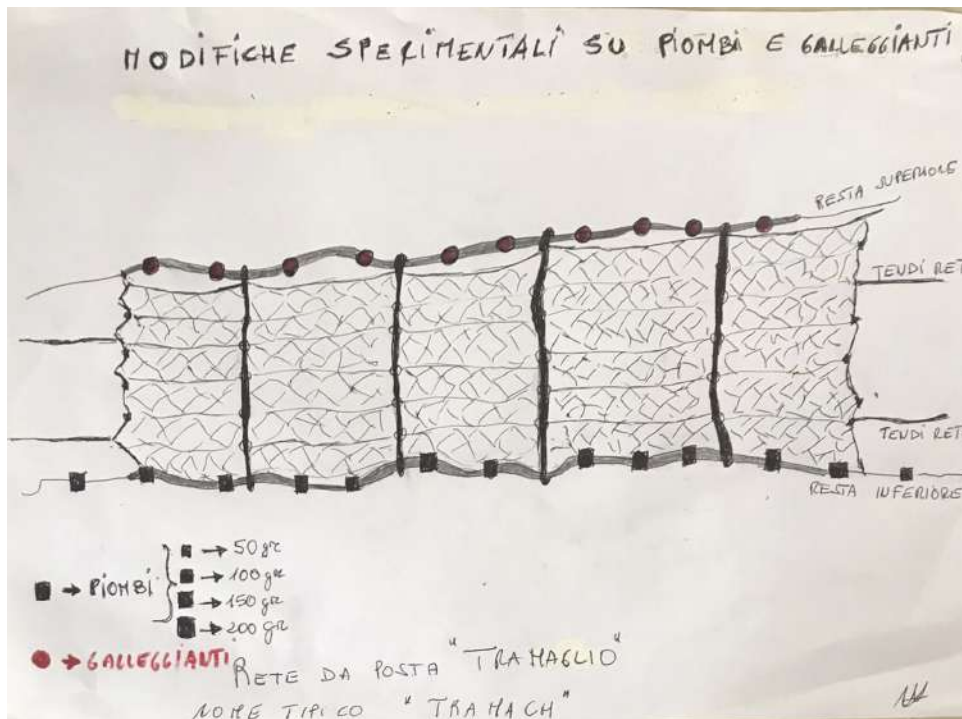 MODIFICHE SPERIMENTALI SU PIOMBI E GALLEGGIANTI
RESTA SUPERIORE
TENDI RET
TENDI RET
RESTA INFERIORE
→ PIOMBI
→ 50 gr
→ 100 gr
→ 150 gr
→ 200 gr
→ GALLEGGIANTI
RETE DA POSTA "TRAMAGLIO"
NOME TIPICO "TRAMACH"